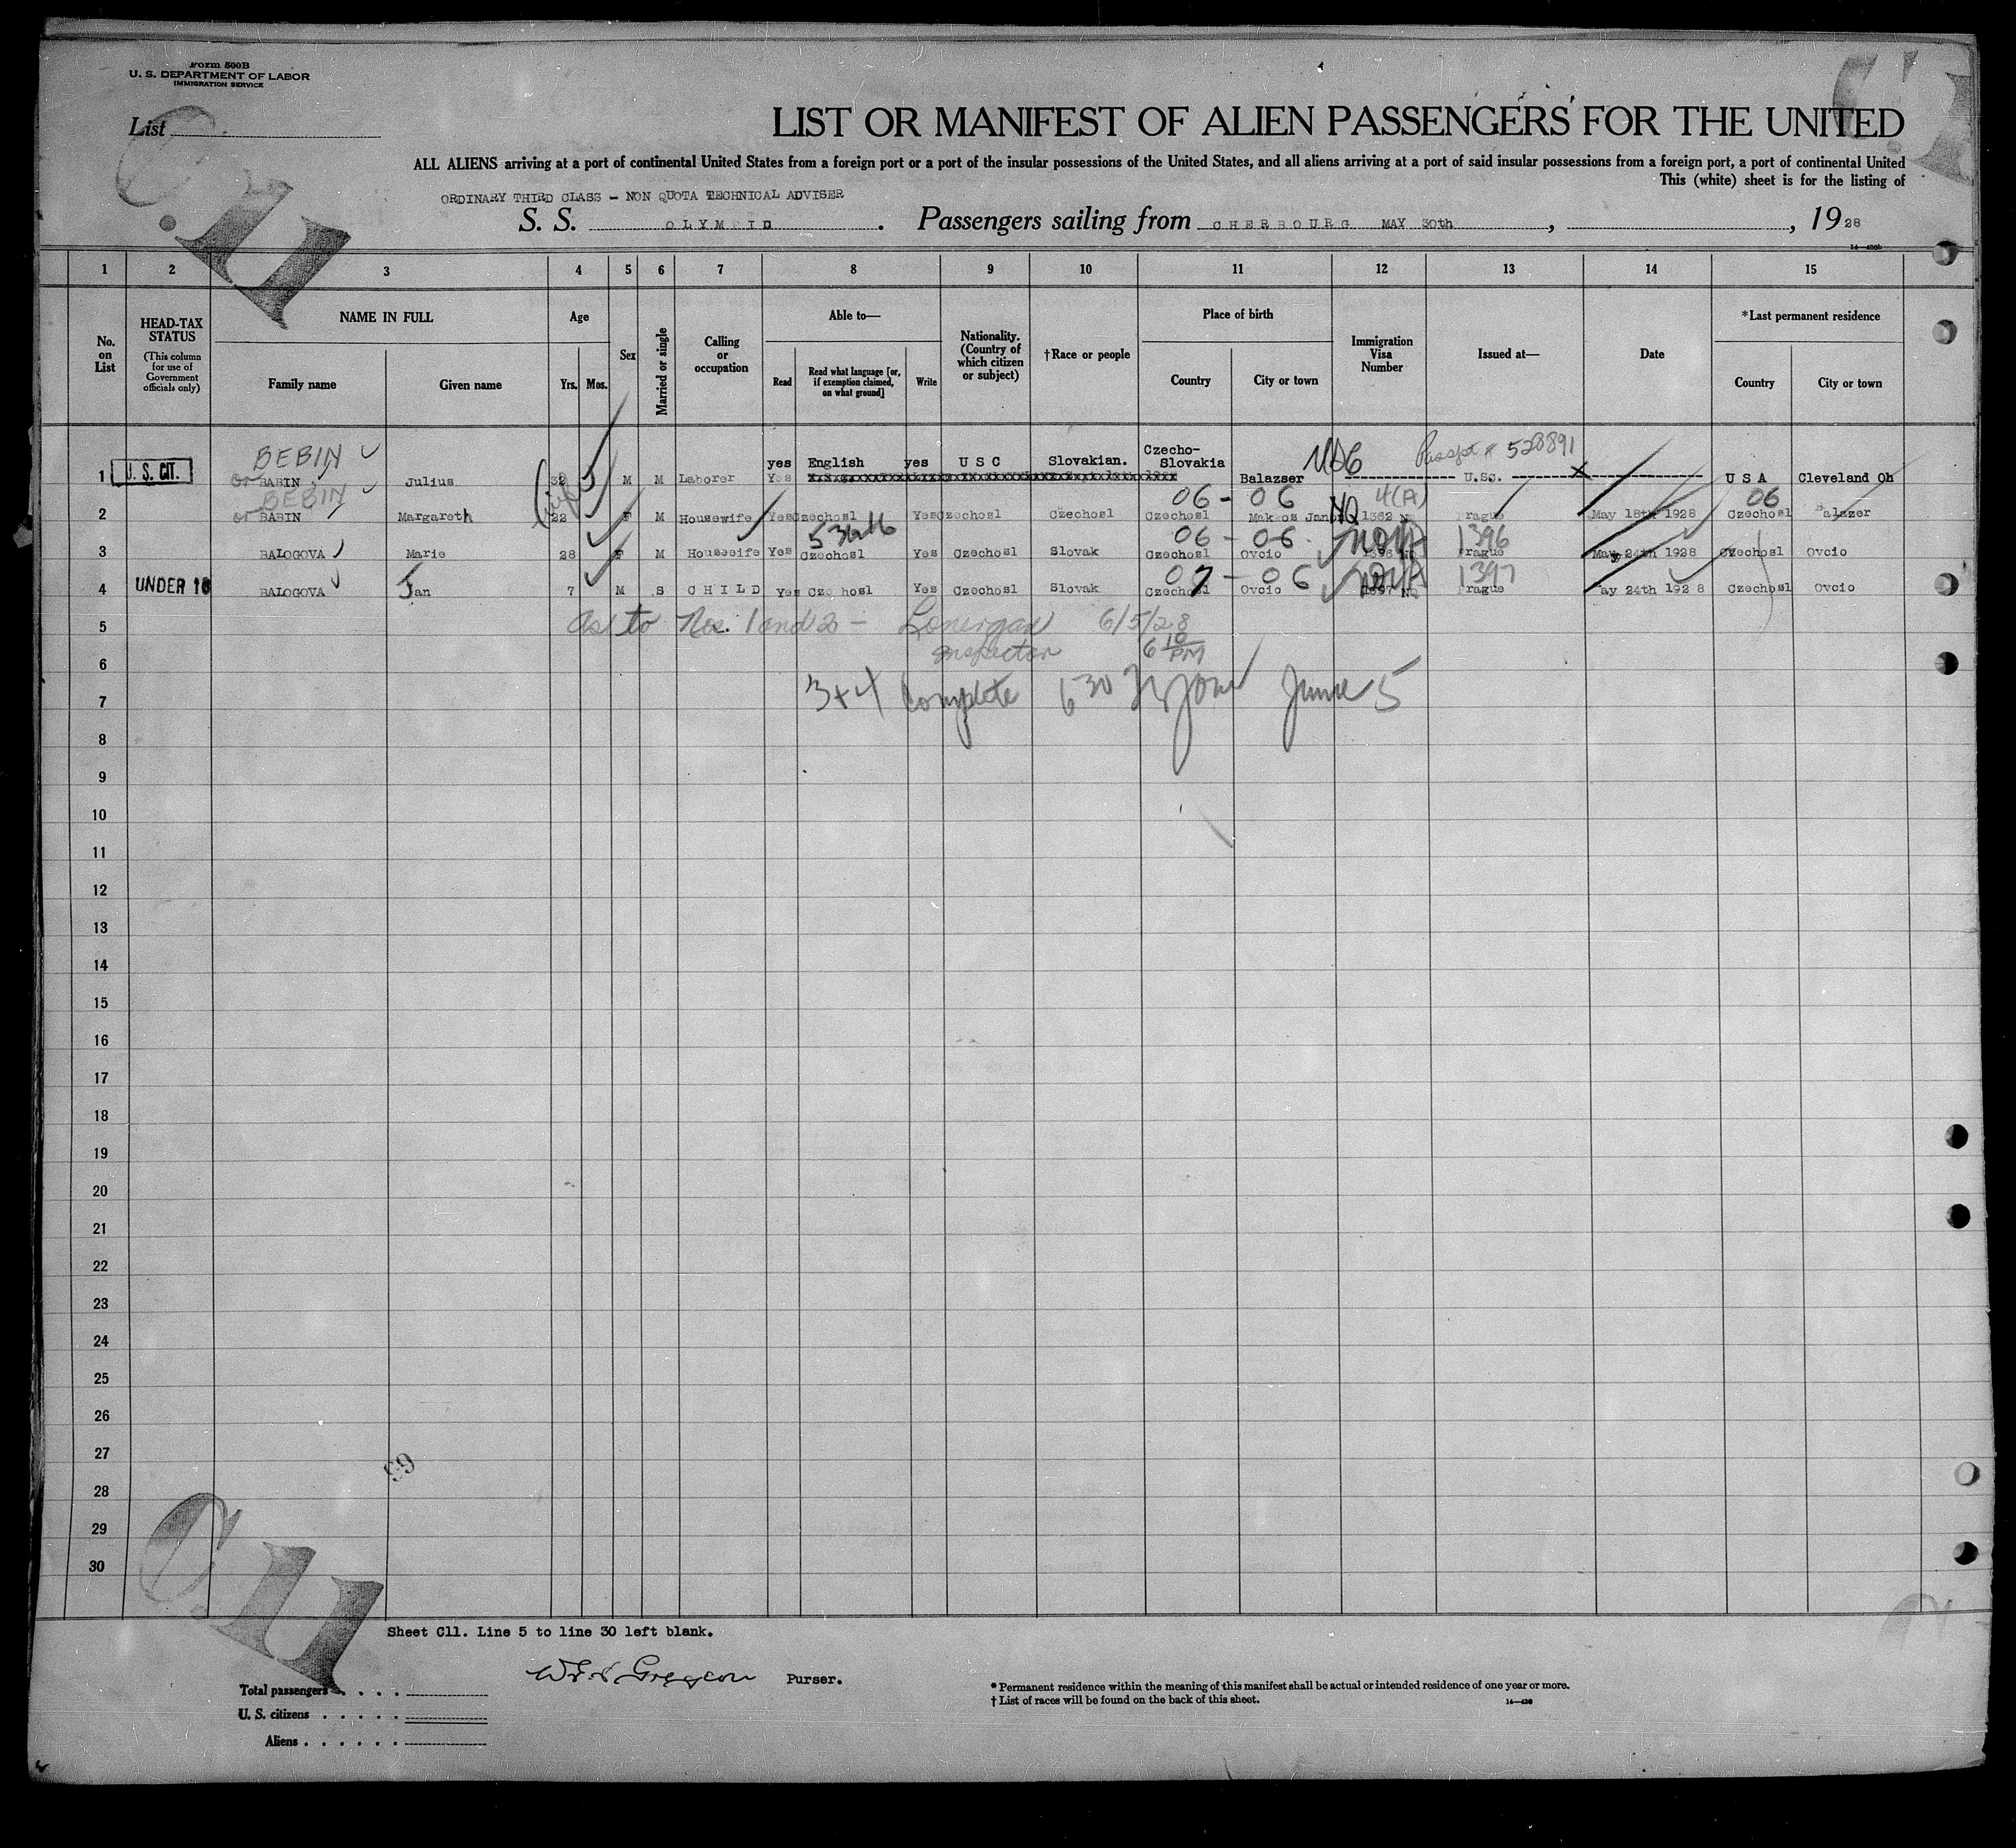 Form 500B
U. S. DEPARTMENT OF LABOR
IMMIGRATION SERVICE
List
LIST OR MANIFEST OF ALIEN PASSENGERS FOR THE UNITED
ALL ALIENS arriving at a port of continental United States from a foreign port or a port of the insular possessions of the United States, and all aliens arriving at a port of said insular possessions from a foreign port, a port of continental United
This (white) sheet is for the listing of
ORDINARY THIRD CLASS - NON QUOTA TECHNICAL ADVISER
S. S. OLYMPIC. Passengers sailing from CHERBOURG MAY 30th, , 1928
1 2 3 4 5 6 7 8 9 10 11 12 13 14 15
No. on List
HEAD-TAX STATUS
(This column for use of Government officials only)
NAME IN FULL
Family name Given name
Age
Yrs. Mos.
Sex
Married or single
Calling or occupation
Able to—
Read
Read what language [or, if exemption claimed, on what ground]
Write
Nationality. (Country of which citizen or subject)
†Race or people
Place of birth
Country City or town
Immigration Visa Number
Issued at—
Date
*Last permanent residence
Country City or town
BEBIN Passpt # 528891
1 U. S. CIT. or BABIN Julius 32 M M Laborer yes English yes U S C Slovakian. Czecho-Slovakia Balazser U.S. U S A Cleveland Oh
BEBIN 06 - 06 4(A) 06
2 or BABIN Margareth 22 F M Housewife Yes Czechosl Yes Czechosl Czechosl Czechosl NQ 1362 NQ Prague May 18th 1928 Czechosl
53616 06 - 06 1396
3 BALOGOVA Marie 28 F M Housewife Yes Czechosl Yes Czechosl Slovak Czechosl Ovcio Prague May 24th 1928 Czechosl Ovcio
07 - 06 1397
4 UNDER 16 BALOGOVA Jan 7 M S CHILD Yes Czechosl Yes Czechosl Slovak Czechosl Ovcio Prague May 24th 1928 Czechosl Ovcio
5 As to Nos. 1 and 2 - Lonergan 6/5/28
6 Inspector 6 10 PM
7 3+4 Complete 6 30 June 5
8
9
10
11
12
13
14
15
16
17
18
19
20
21
22
23
24
25
26
27
28
29
30
Sheet C11. Line 5 to line 30 left blank.
Purser.
Total passengers
U. S. citizens
Aliens
* Permanent residence within the meaning of this manifest shall be actual or intended residence of one year or more.
† List of races will be found on the back of this sheet.